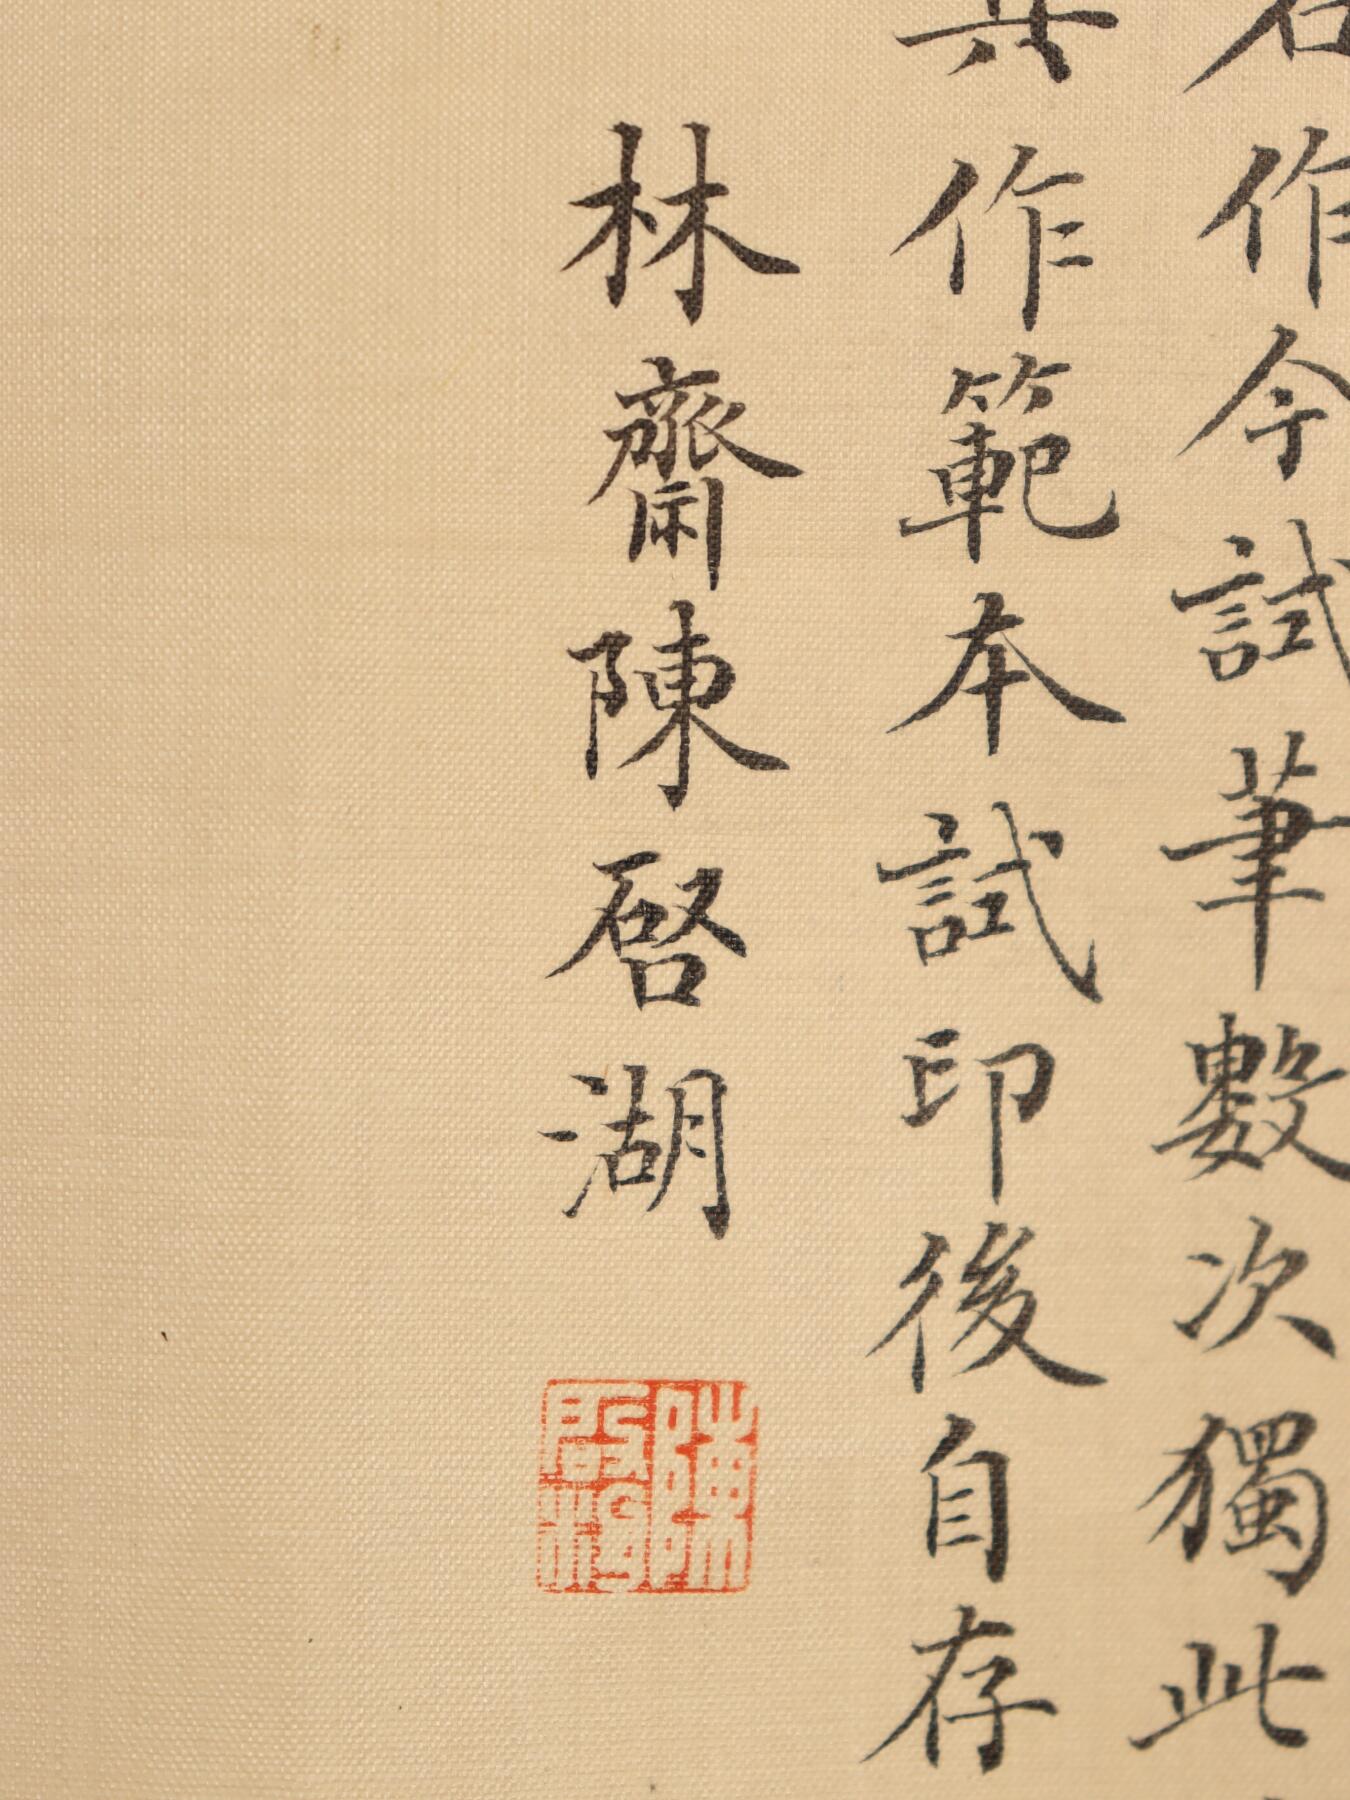 作今試筆數次獨此
作範本試印後自存
林齋陳啓湖